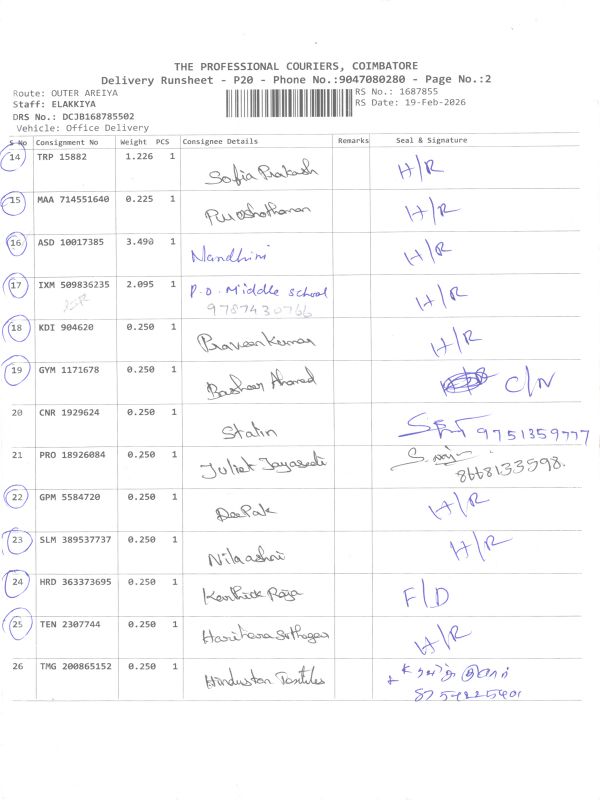 THE PROFESSIONAL COURIERS, COIMBATORE
Delivery Runsheet - P20 - Phone No.:9047080280 - Page No.:2
Route: OUTER AREIYA RS No.: 1687855
Staff: ELAKKIYA RS Date: 19-Feb-2026
DRS No.: DCJB168785502
Vehicle: Office Delivery
S No Consignment No Weight PCS Consignee Details Remarks Seal & Signature
14 TRP 15882 1.226 1 Sofia Prakash H/R
15 MAA 714551640 0.225 1 Purushothaman H/R
16 ASD 10017385 3.490 1 Nandhini H/R
17 IXM 509836235 2.095 1 P.U. Middle school H/R
9787430766
18 KDI 904620 0.250 1 Praveen Kumar H/R
19 GYM 1171678 0.250 1 Basheer Ahamed C/N
20 CNR 1929624 0.250 1 Stalin 9751359777
21 PRO 18926084 0.250 1 Juliet 8668133598.
22 GPM 5584720 0.250 1 DeePak H/R
23 SLM 389537737 0.250 1 Nilaashri H/R
24 HRD 363373695 0.250 1 Karthick Raja F/D
25 TEN 2307744 0.250 1 H/R
26 TMG 200865152 0.250 1 Hindustan Textiles